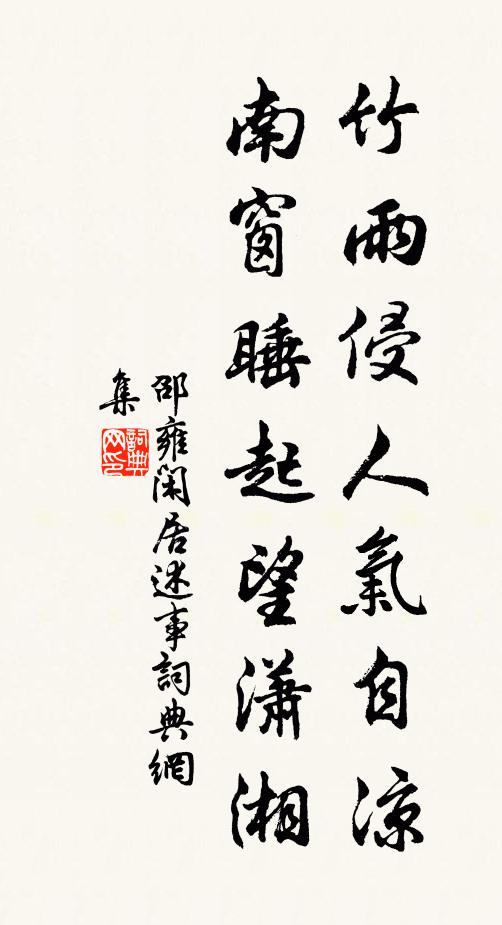 竹雨侵人氣自涼
南窗睡起望瀟湘
邵雍閑居述事詞典網
集
詞典
网印